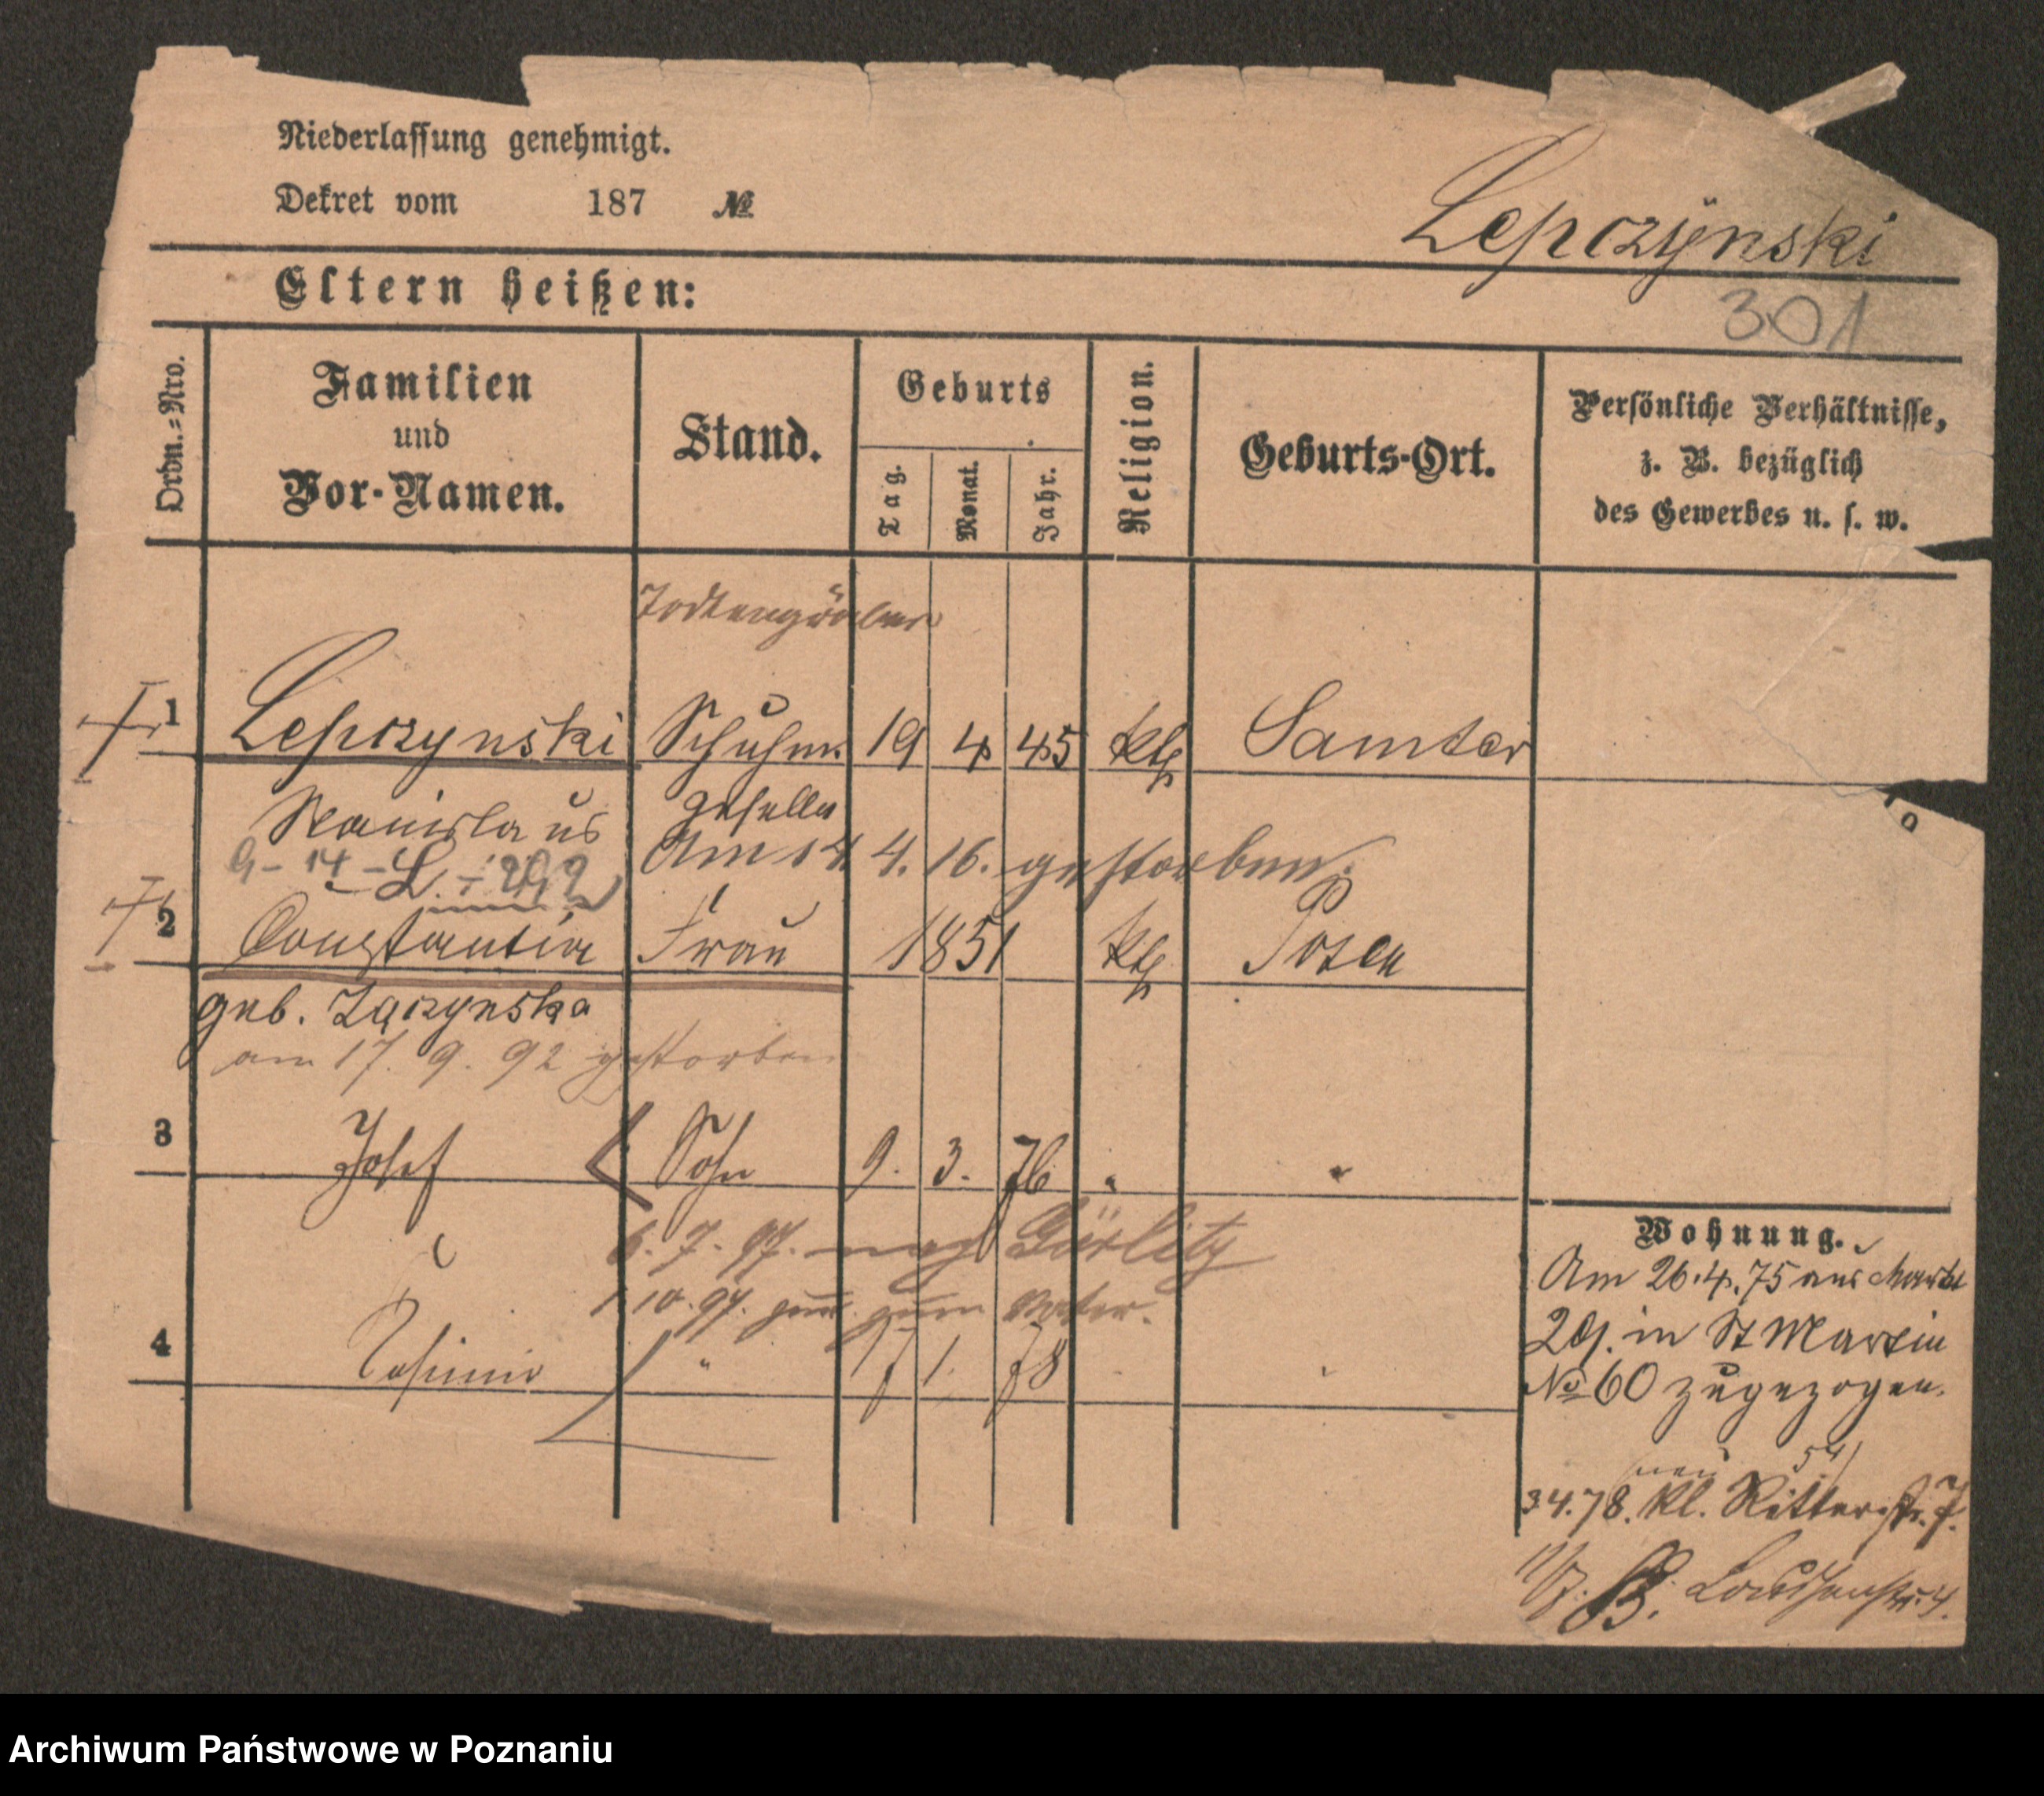 Niederlassung genehmigt.
Dekret vom 187 №
Lepczynski
301
Eltern heißen:
Ordn.=Nro.
Familien
und
Vor-Namen.
Stand.
Geburts
Tag.
Monat.
Jahr.
Religion.
Geburts-Ort.
Persönliche Verhältnisse,
z. B. bezüglich
des Gewerbes u. s. w.
Todtengräber
1 Lepczynski Schuhm. 19 4 45 kth Samter
Stanislaus geselle
Am 14 4. 16. gestorben.
9-14-L.
2 Constantia Frau 1851 kth Posen
geb. Łączynska
am 17. 9. 92 gestorben
3 Josef Sohn 9. 3. 76 " "
6. 7. 97. nach Görlitz
1.10.97. zum Vater.
4 Casimir " 17 1. 78
Wohnung.
Am 26.4.75 aus Markt
29. in St Martin
№ 60 zugezogen.
(neu 54)
3 4.78. Kl. Ritterstr. 7.